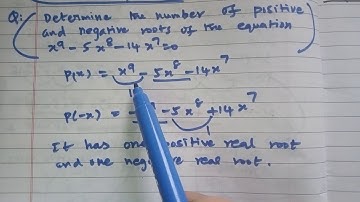 Q: Determine the number of positive
and negative roots of the equation
x⁹ - 5x⁸ - 14x⁷ = 0
P(x) = x⁹ - 5x⁸ - 14x⁷
P(-x) = - 5x⁸ + 14x⁷
It has one positive real root
and one negative real root.